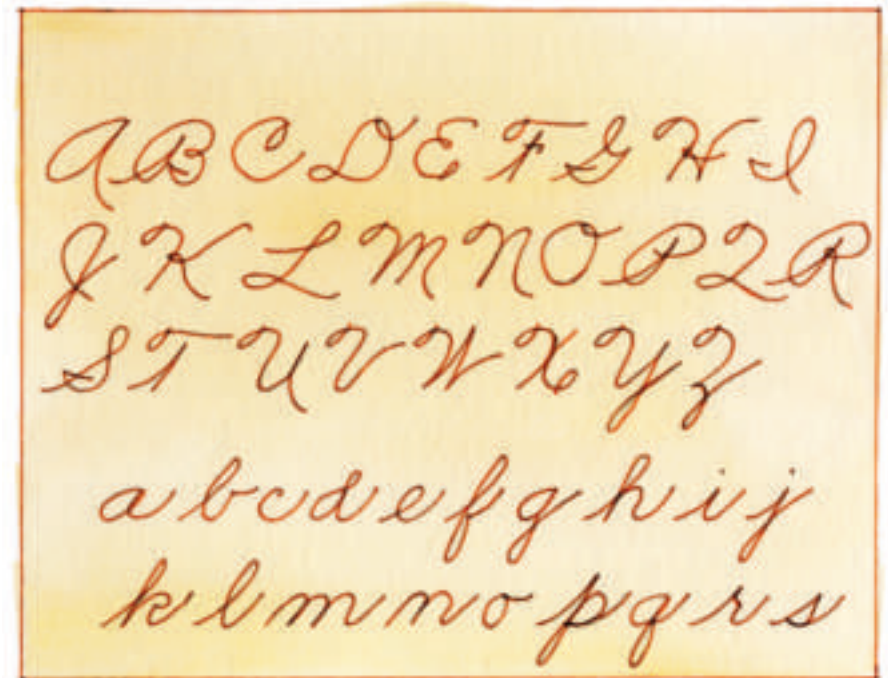 A B C D E F G H I
J K L M N O P Q R
S T U V W X Y Z
a b c d e f g h i j
k l m n o p q r s